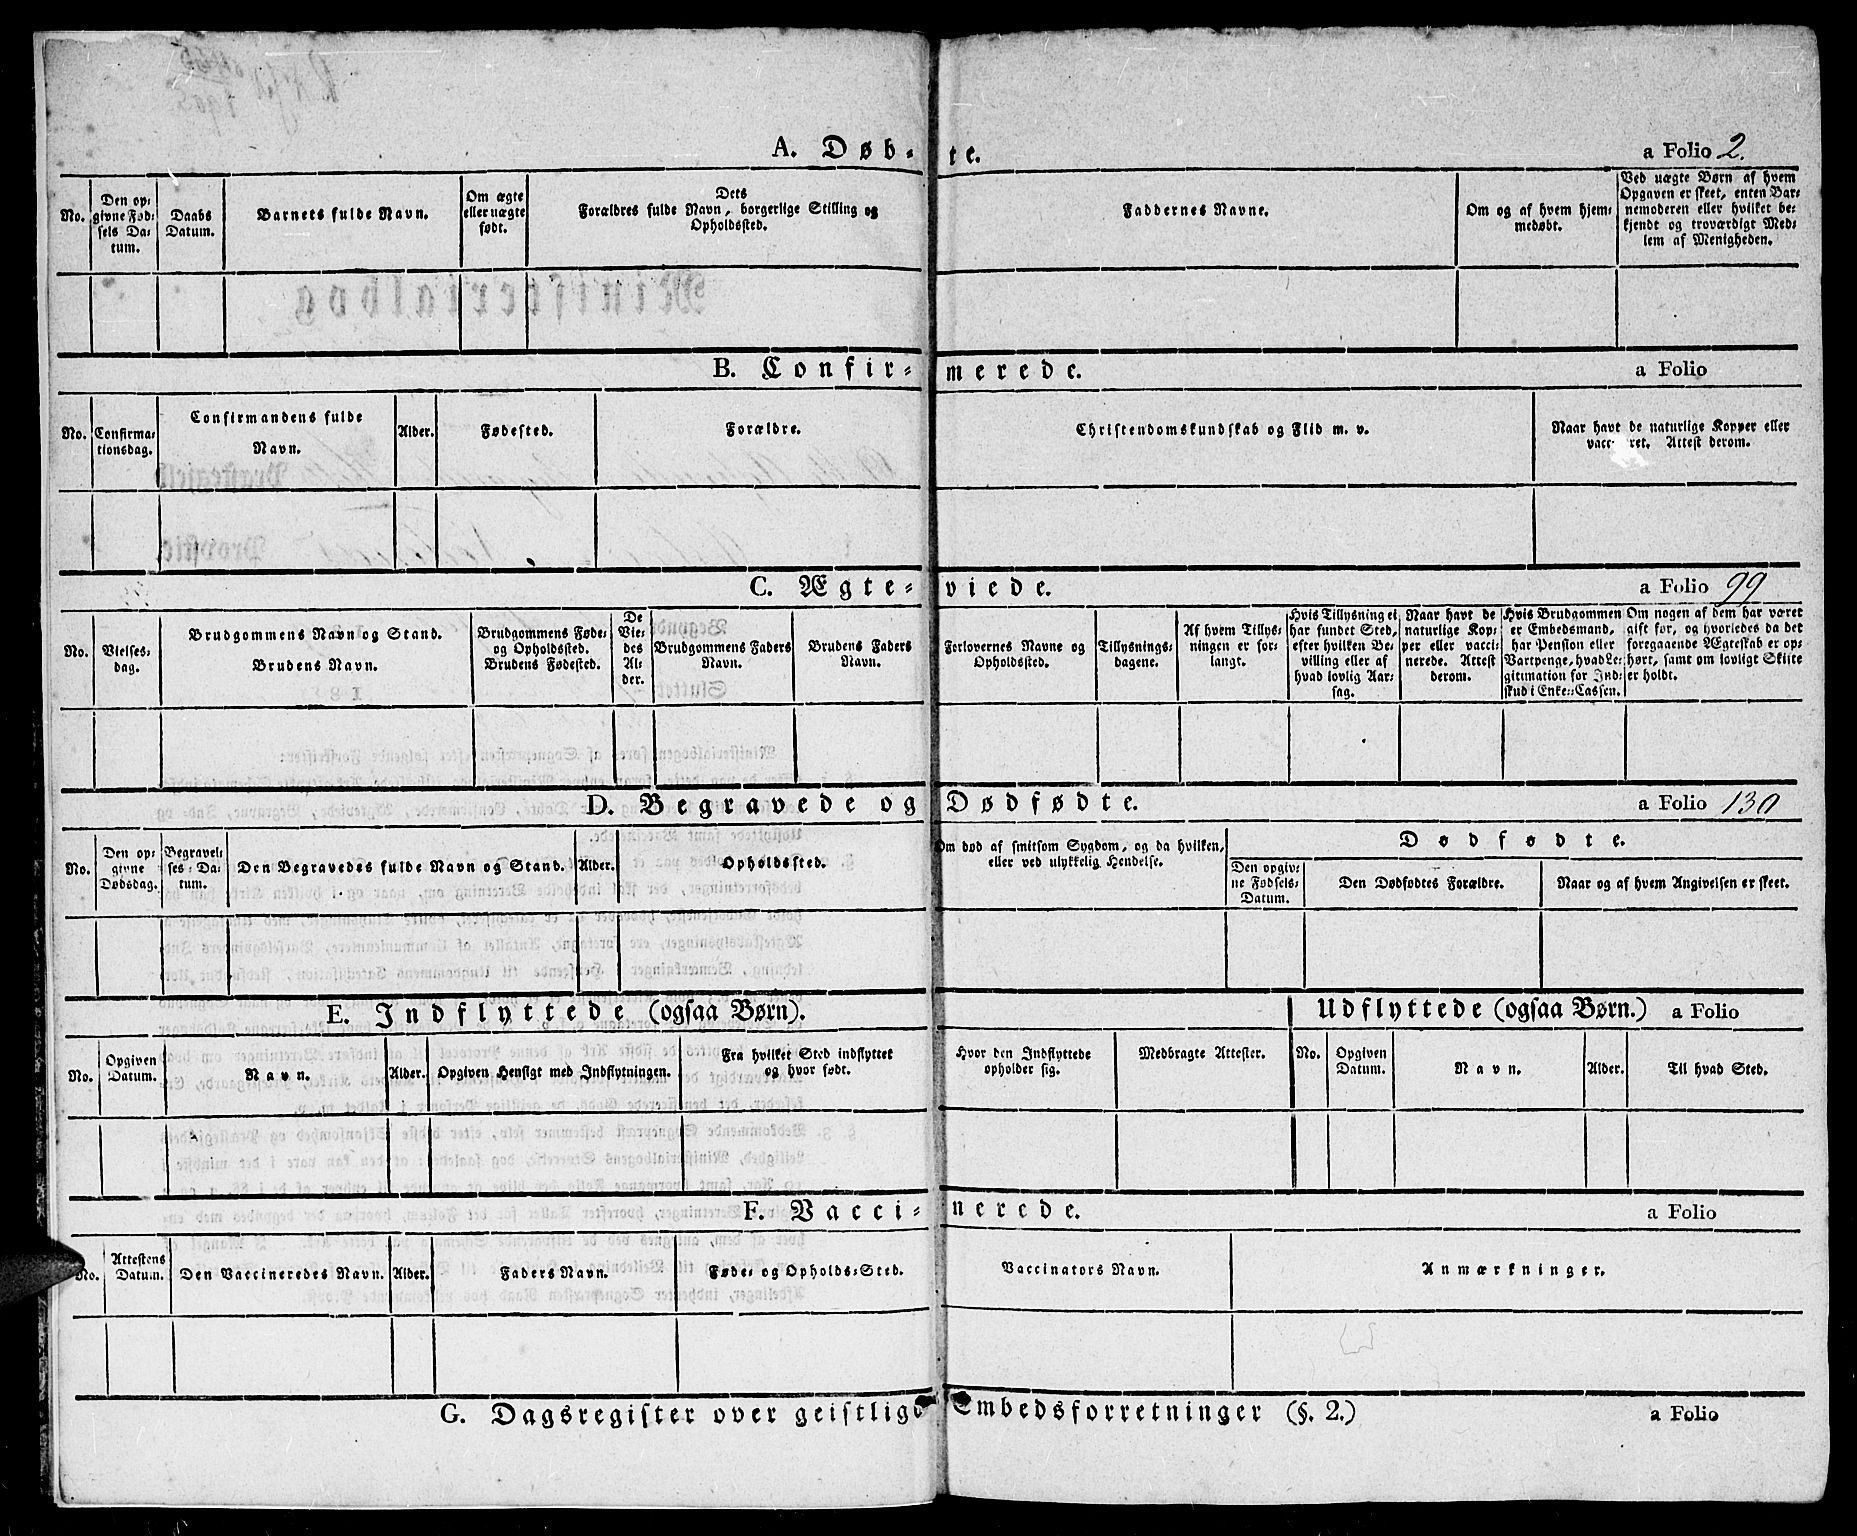 A. Døb-te. a Folio 2.
No. Den opgivne Fødsels Datum. Daabs Datum. Barnets fulde Navn. Om ægte eller uægte født. Dets Forældres fulde Navn, borgerlige Stilling og Opholdssted. Faddernes Navne. Om og af hvem hjemmedøbt. Ved uægte Børn af hvem Opgaven er skeet, enten Barnemoderen eller hvilket bekjendt og troværdigt Medlem af Menigheden.
B. Confir-merede. a Folio
No. Confirmationsdag. Confirmandens fulde Navn. Alder. Fødested. Forældre. Christendomskundskab og Flid m. v. Naar havt de naturlige Kopper eller Attest derom.
C. Ægte-viede. a Folio 99
No. Vielsesdag. Brudgommens Navn og Stand. Brudens Navn. Brudgommens Føde- og Opholdssted. Brudens Fødested. De Viedes Alder. Brudgommens Faders Navn. Brudens Faders Navn. Forlovernes Navne og Opholdssted. Tillysningsdagene. Af hvem Tillysningen er forlangt. Hvis Tillysning ei har fundet Sted, efter hvilken Bevilling eller af hvad lovlig Aarsag. Naar havt de naturlige Kopper eller vaccinerede. Attest derom. Hvis Brudgommen er Embedsmand, har Pension eller Vartpenge, hvad Legitimation for Indskud i Enke-Cassen. Om nogen af dem har været gift før, og hvorledes da det foregaaende Ægteskab er ophørt, samt om lovligt Skifte er holdt.
D. Begravede og Dødfødte. a Folio 130
No. Den opgivne Dødsdag. Begravelses-Datum. Den Begravedes fulde Navn og Stand. Alder. Opholdssted. Om død af smitsom Sygdom, og da hvilken, eller ved ulykkelig Hendelse. Dødfødte. Den opgivne Fødsels-Datum. Den Dødfødtes Forældre. Naar og af hvem Angivelsen er skeet.
E. Indflyttede (ogsaa Børn). Udflyttede (ogsaa Børn.) a Folio
No. Opgiven Datum. Navn. Alder. Opgiven Hensigt med Indflytningen. Fra hvilket Sted indflyttet og hvor født. Hvor den Indflyttede opholder sig. Medbragte Attester. No. Opgiven Datum. Navn. Alder. Til hvad Sted.
F. Vacci-nerede. a Folio
No. Attestens Datum. Den Vaccineredes Navn. Alder. Faders Navn. Føde- og Opholds-Sted. Vaccinators Navn. Anmærkninger.
G. Dagsregister over geistlige Embedsforretninger (§. 2.) a Folio